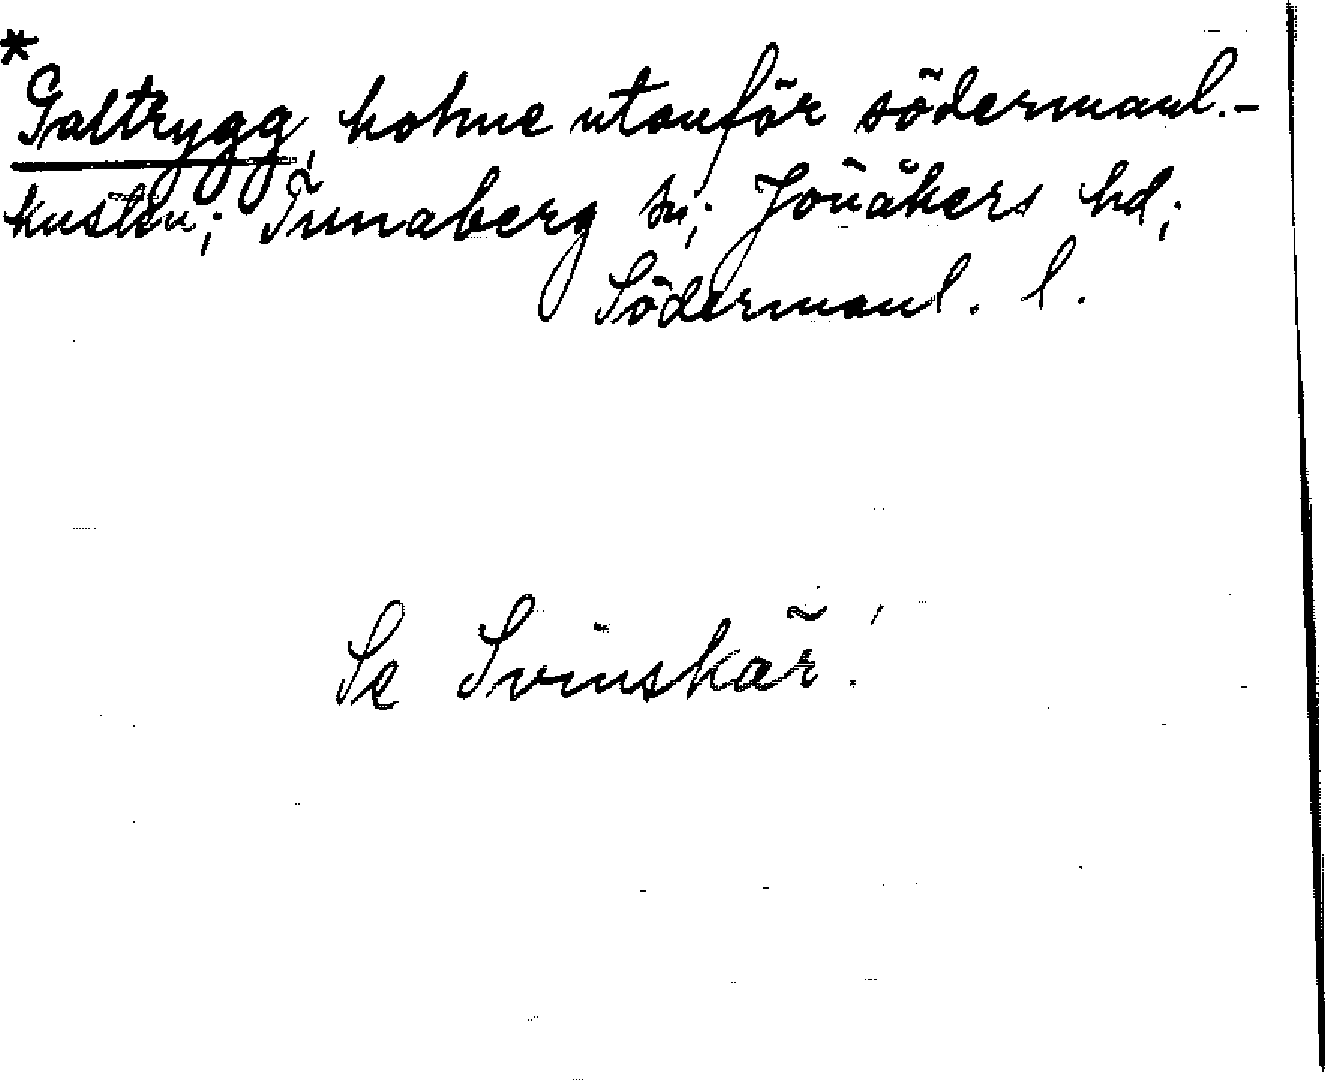 *
Galtrygg, holme utanför södermanl.-
kusten; Tunaberg sn; Jönåkers hd;
Södermanl. l.
Se Svinskär!